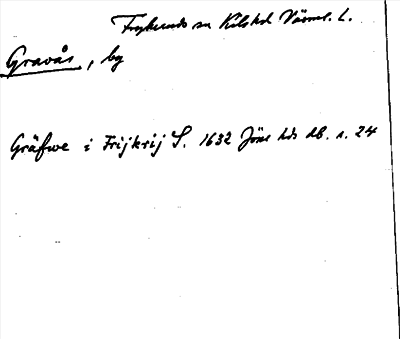 Fryksände sn Kils hd Värml. L.
Gravås, by
Gräfwe i Frijkrij S. 1632 Jöns hds db. s. 24